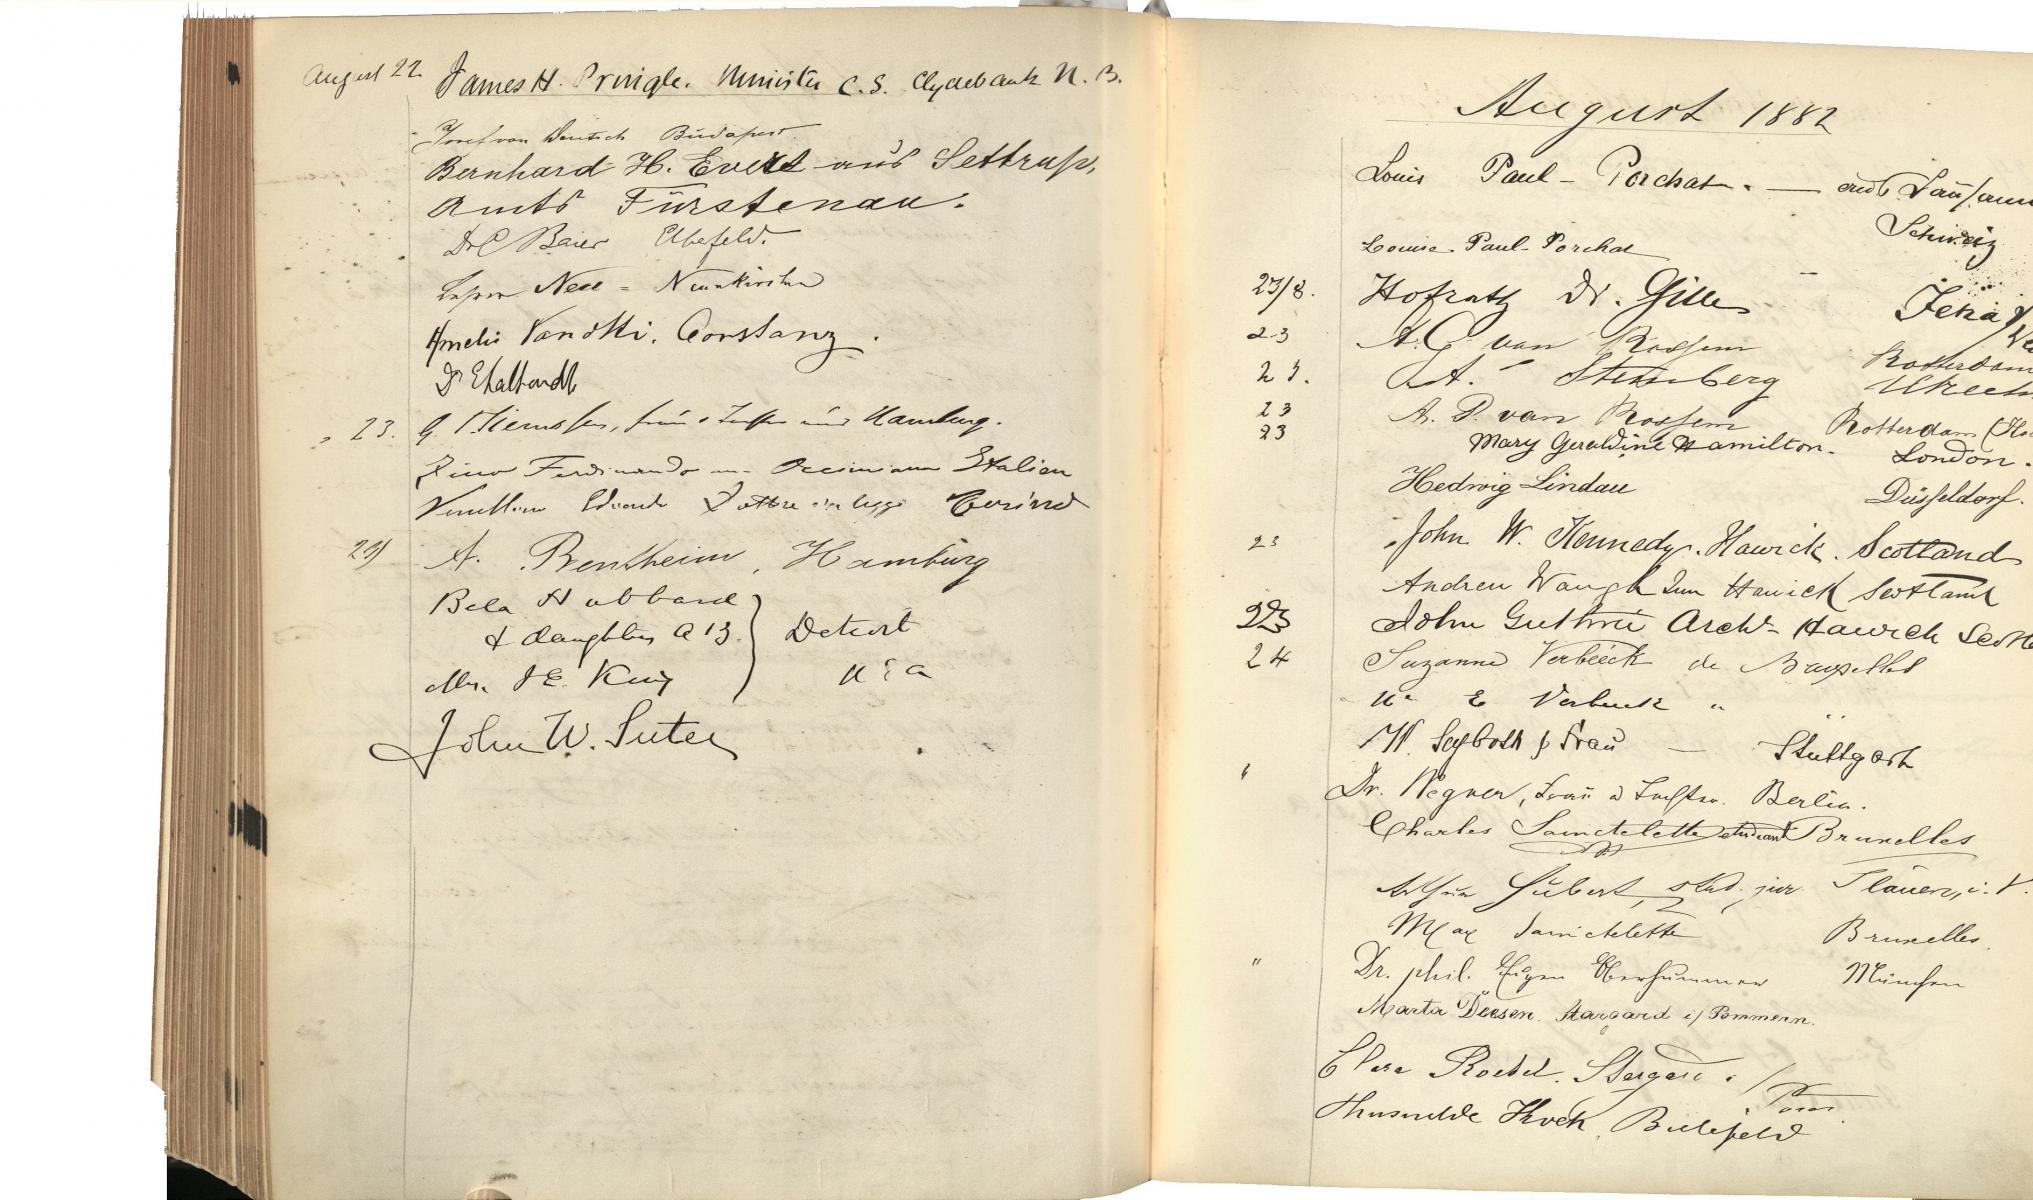 August 22 James H. Pringle. Minister C. S. Clydebank N. B.
Josef von Deutsch Budapest
Bernhard H. Evert aus Settrup,
Amts Fürstenau.
Dr C Baier Elbefeld.
Neunkirchen
Amelie Vanotti. Constanz.
Dr
" 23. G. Hamburg.
Ferdinando Occimiano Italien
Edoardo Dottore in legge
23 A. Bentheim, Hamburg
Bela Hubbard
& daughter a 13. } Detroit
Mrs. J E. King U S a
John W. Suter
August 1882
Louis Paul-Porchat. — aus Lausann
Schweiz
Louise Paul-Porchat
23/8. Hofrath Dr. Gille Jena
23 A. G. van Rossem Rotterdam
23. A. Sternberg Utrecht
23 A. P. van Rossem Rotterdam (Ho
23 Mary Geraldine Hamilton. London.
Hedwig Lindau Düsseldorf.
23 John W. Kennedy. Hawick. Scotland
Andrew Waugh Jun Hawick Scotland
23 John Guthrie Archt Hawick Scotl
24 Suzanne Verbeeck de Bruxelles
E Verbeeck "
W. Seyboth & Frau — Stuttgart
" Dr. Wegner, Frau u Tochter. Berlin.
Charles Sainctelette étudiant Bruxelles
Arthur Hubert, stud. jur Plauen, i. V.
Max Sainctelette Bruxelles.
" Dr. phil. Eugen Oberhummer München
Marta Deesen. Stargard i/ Pommern.
Clara Roedel. Stargard i/
Pom.
Thusnelde Koch, Bielefeld